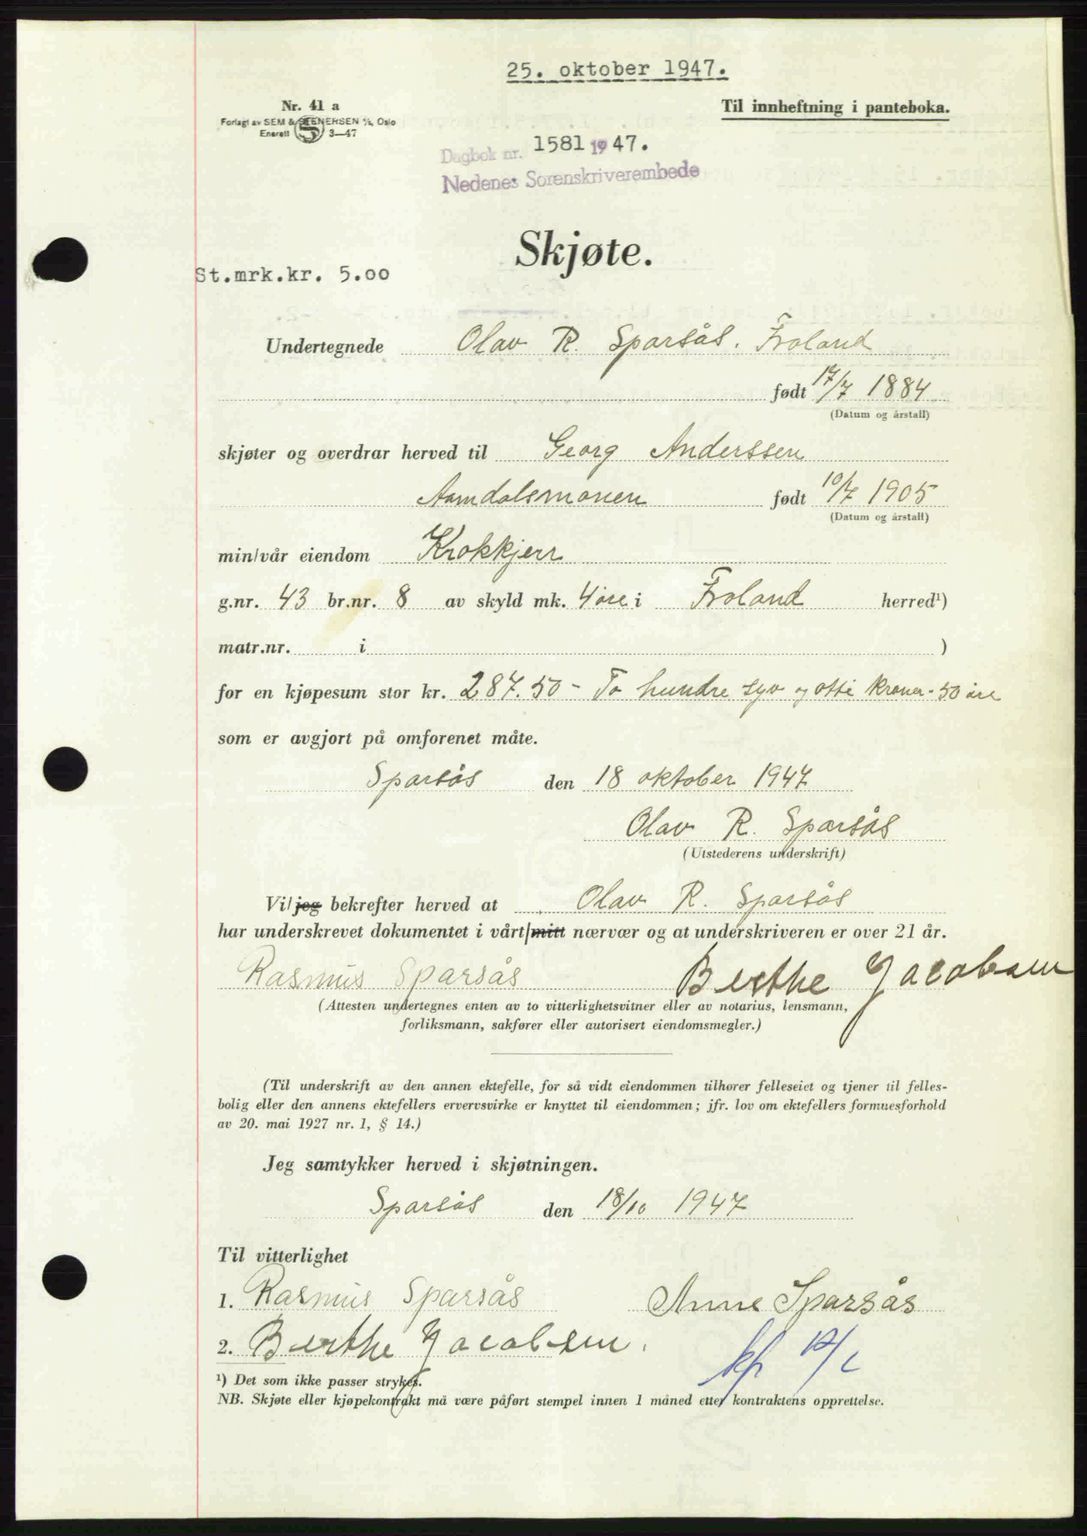 25. oktober 1947.
Nr. 41 a
Til innheftning i panteboka.
Forlagt av SEM & STENERSEN A/S, Oslo
Enerett S 3—47
Dagbok nr. 1581 1947.
Nedenes Sorenskriverembede
Skjøte.
St.mrk.kr. 5.00
Undertegnede Olav R. Sparsås. Froland
født 17/7 1884
(Datum og årstall)
skjøter og overdrar herved til Georg Anderssen
Aamdalsmonen født 10/7 1905
(Datum og årstall)
min/vår eiendom Krokkjerr
g.nr. 43 br.nr. 8 av skyld mk. 4 øre i Froland herred¹)
matr.nr. i )
for en kjøpesum stor kr. 287.50 - To hundre syv og otti kroner - 50 øre
som er avgjort på omforenet måte.
Sparsås den 18 oktober 1947
Olav R. Sparsås
(Utstederens underskrift)
Vi/jeg bekrefter herved at Olav R. Sparsås
har underskrevet dokumentet i vårt/mitt nærvær og at underskriveren er over 21 år.
Rasmus Sparsås Berthe Jacobsen
(Attesten undertegnes enten av to vitterlighetsvitner eller av notarius, lensmann,
forliksmann, sakfører eller autorisert eiendomsmegler.)
(Til underskrift av den annen ektefelle, for så vidt eiendommen tilhører felleseiet og tjener til felles-
bolig eller den annens ektefellers ervervsvirke er knyttet til eiendommen; jfr. lov om ektefellers formuesforhold
av 20. mai 1927 nr. 1, § 14.)
Jeg samtykker herved i skjøtningen.
Sparsås den 18/10 1947
Til vitterlighet
1. Rasmus Sparsås Anne Sparsås
2. Berthe Jacobsen.
¹) Det som ikke passer strykes.
NB. Skjøte eller kjøpekontrakt må være påført stempel innen 1 måned etter kontraktens opprettelse.